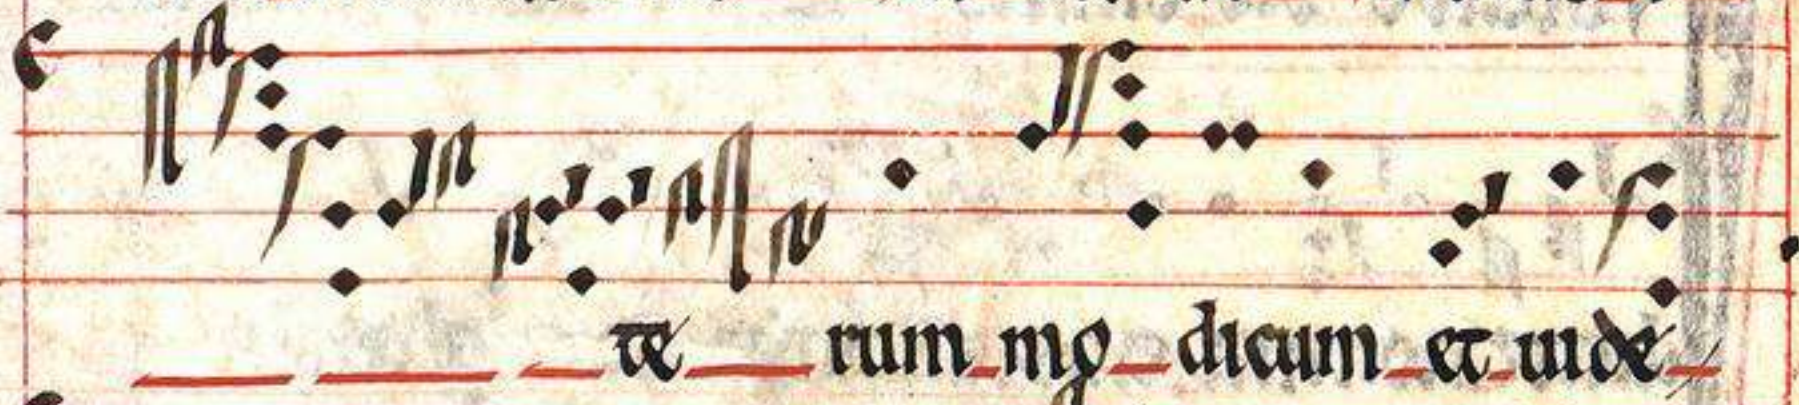 te rum mo dicum et uide